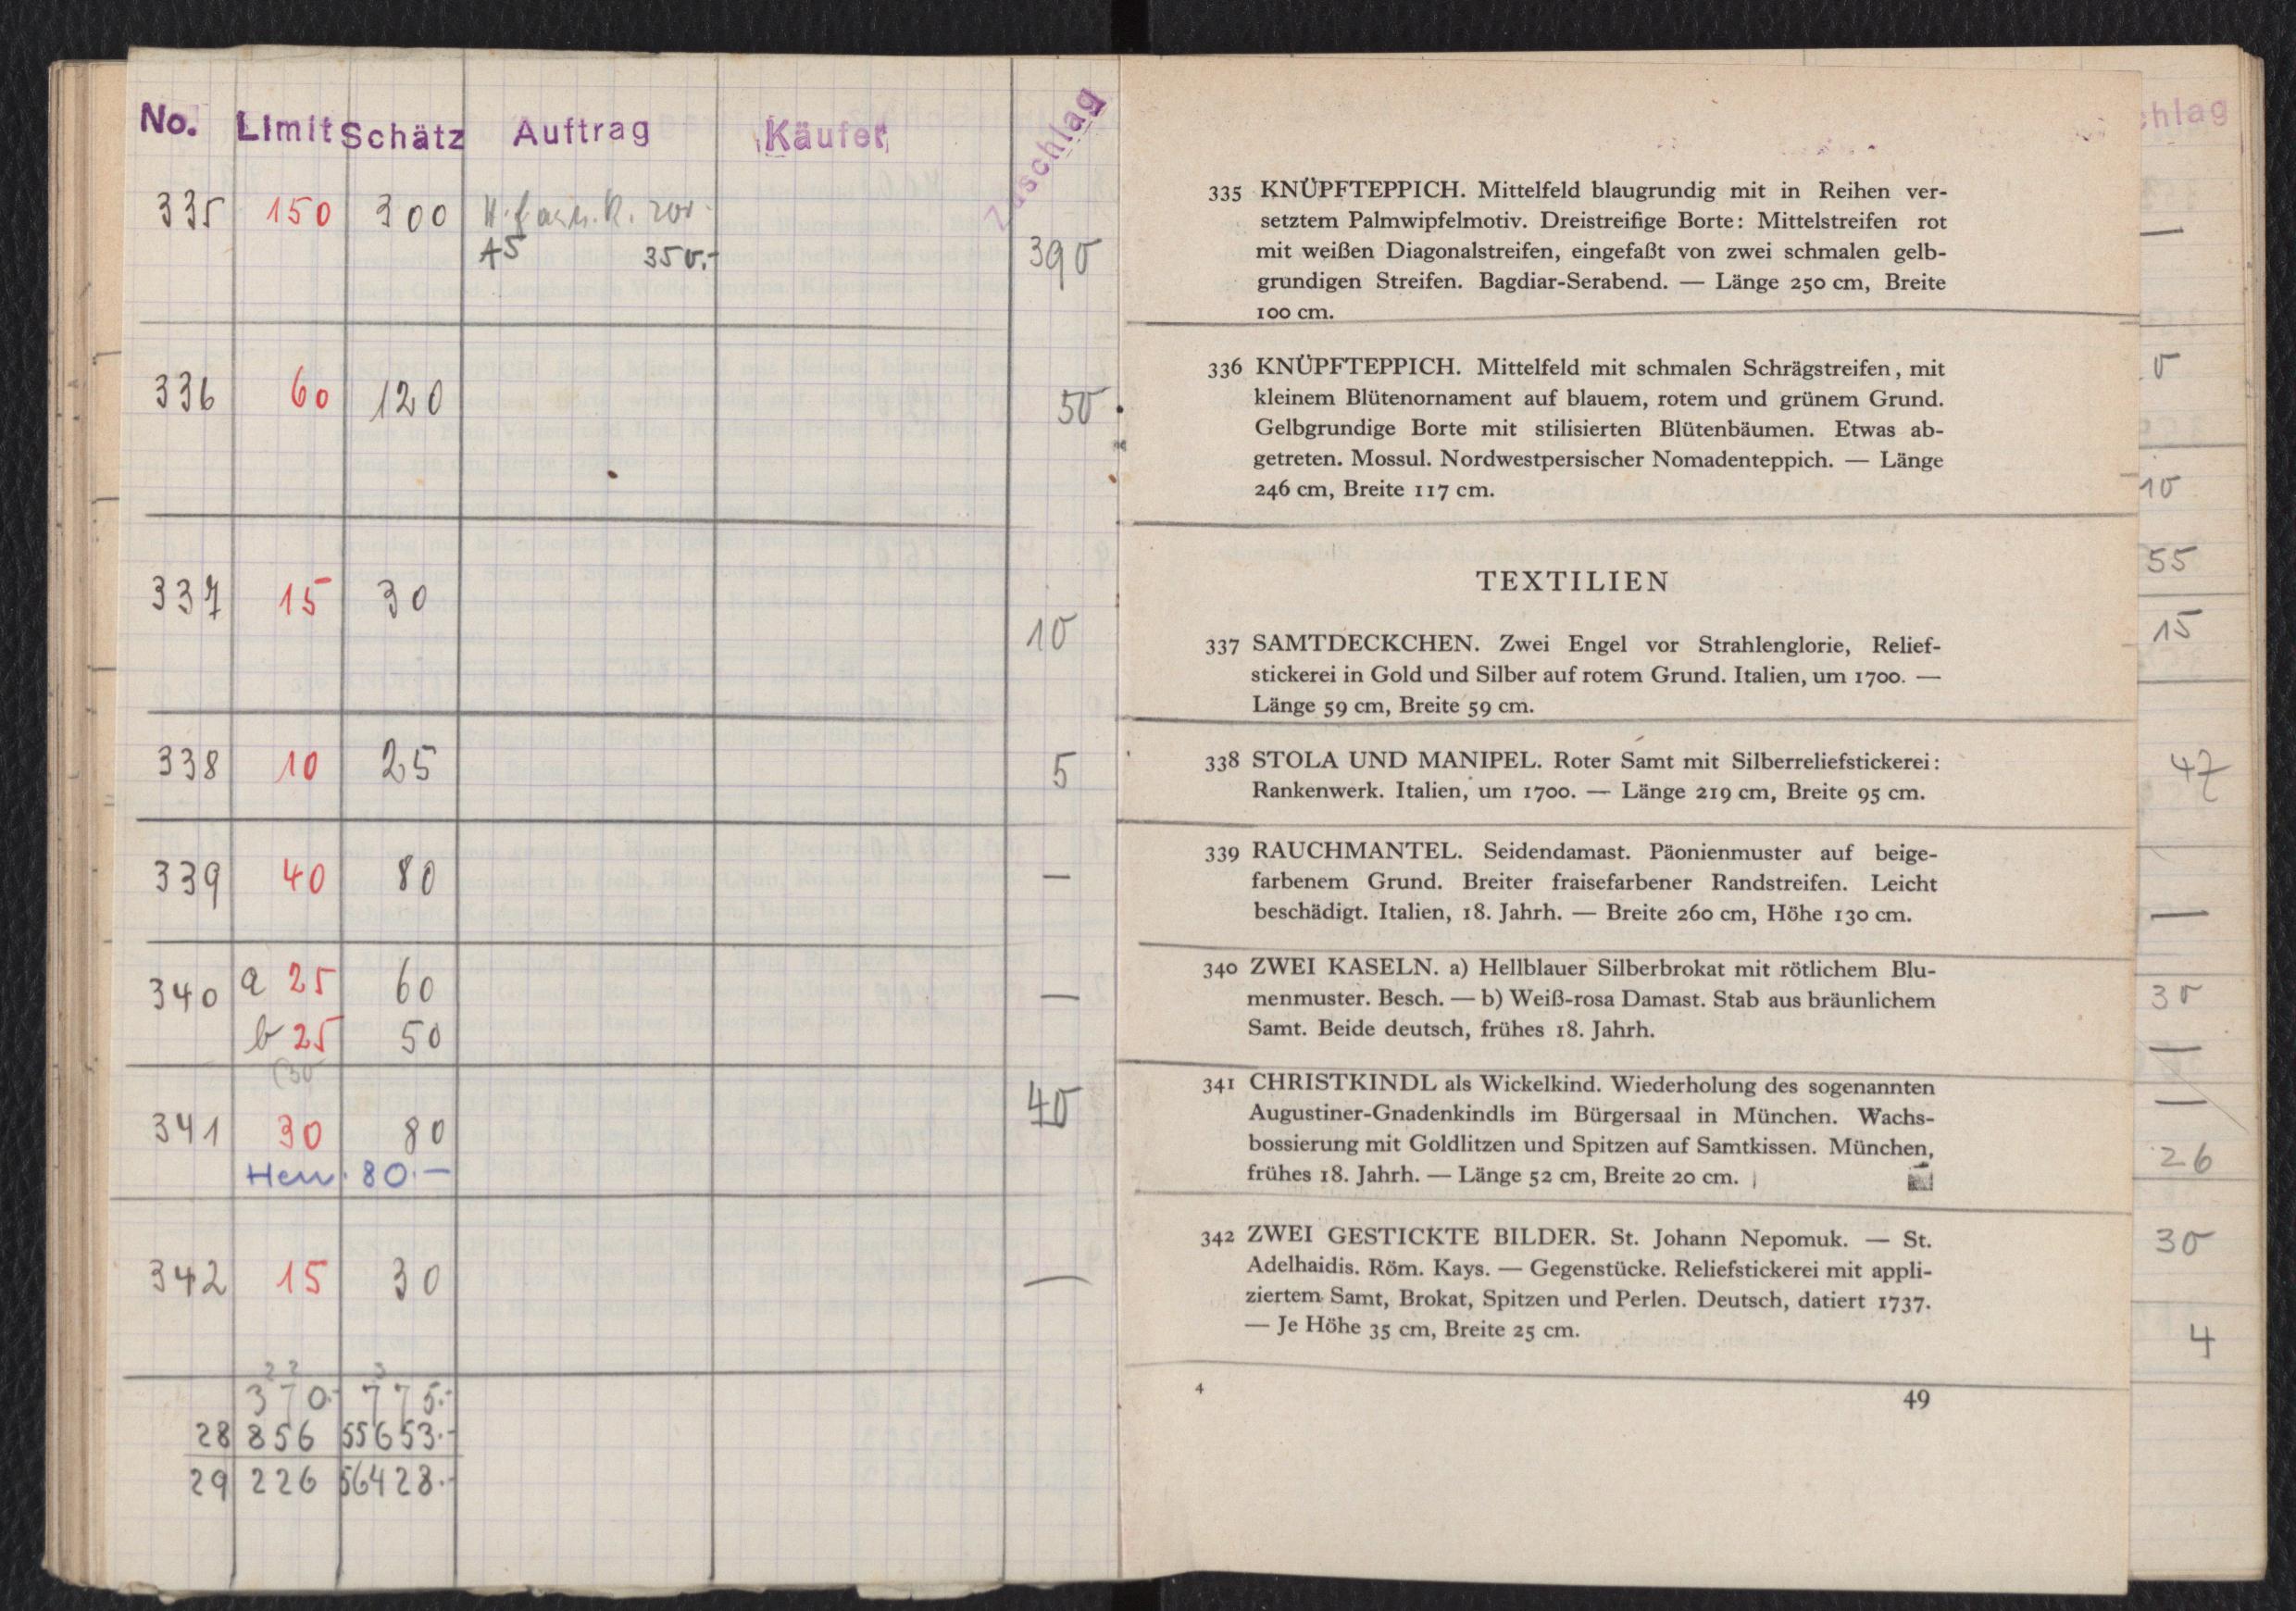 No. Limit Schätz Auftrag Käufer Zuschlag
335 150 300
A5 350.- 390
336 60 120 50
337 15 30 10
338 10 25 5
339 40 80 —
340 a 25 60 —
b 25 50
(50
341 30 80 40
80.—
342 15 30 —
370.- 775.-
28 856 55653.-
29 226 56428.-
335 KNÜPFTEPPICH. Mittelfeld blaugrundig mit in Reihen ver-
setztem Palmwipfelmotiv. Dreistreifige Borte: Mittelstreifen rot
mit weißen Diagonalstreifen, eingefaßt von zwei schmalen gelb-
grundigen Streifen. Bagdiar-Serabend. — Länge 250 cm, Breite
100 cm.
336 KNÜPFTEPPICH. Mittelfeld mit schmalen Schrägstreifen, mit
kleinem Blütenornament auf blauem, rotem und grünem Grund.
Gelbgrundige Borte mit stilisierten Blütenbäumen. Etwas ab-
getreten. Mossul. Nordwestpersischer Nomadenteppich. — Länge
246 cm, Breite 117 cm.
TEXTILIEN
337 SAMTDECKCHEN. Zwei Engel vor Strahlenglorie, Relief-
stickerei in Gold und Silber auf rotem Grund. Italien, um 1700. —
Länge 59 cm, Breite 59 cm.
338 STOLA UND MANIPEL. Roter Samt mit Silberreliefstickerei:
Rankenwerk. Italien, um 1700. — Länge 219 cm, Breite 95 cm.
339 RAUCHMANTEL. Seidendamast. Päonienmuster auf beige-
farbenem Grund. Breiter fraisefarbener Randstreifen. Leicht
beschädigt. Italien, 18. Jahrh. — Breite 260 cm, Höhe 130 cm.
340 ZWEI KASELN. a) Hellblauer Silberbrokat mit rötlichem Blu-
menmuster. Besch. — b) Weiß-rosa Damast. Stab aus bräunlichem
Samt. Beide deutsch, frühes 18. Jahrh.
341 CHRISTKINDL als Wickelkind. Wiederholung des sogenannten
Augustiner-Gnadenkindls im Bürgersaal in München. Wachs-
bossierung mit Goldlitzen und Spitzen auf Samtkissen. München,
frühes 18. Jahrh. — Länge 52 cm, Breite 20 cm.
342 ZWEI GESTICKTE BILDER. St. Johann Nepomuk. — St.
Adelhaidis. Röm. Kays. — Gegenstücke. Reliefstickerei mit appli-
ziertem Samt, Brokat, Spitzen und Perlen. Deutsch, datiert 1737.
— Je Höhe 35 cm, Breite 25 cm.
4 49
chlag
—
0
10
55
15
47
—
30
—
—
26
30
4